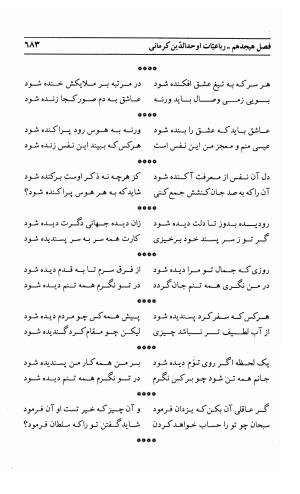 فصل هیجدهم ـ رباعیّات اوحدالدّین کرمانی ۶۸۳
****
هر سر که به تیغ عشق افکنده شود در مرتبه بر ملایکش خنده شود
بویی زمی وصال باید ورنه عاشق به دم صور کجا زنده شود
****
عاشق باید که عشق را بنده شود ورنه به هوس رود پراکنده شود
عیسی منم و معجز من این نفس است هرکس که ببیند این نفس زنده شود
****
دل آن نفس از معرفت آکنده شود کز هرچه نه ذکر اوست برکنده شود
آن را که به صد جان کنشش جمع کنی شاید که به هر هوس پراکنده شود؟
****
رو دیده بدوز تا دلت دیده شود زان دیده جهانی دگرت دیده شود
گر تو ز سر پسند خود برخیزی کارت همه سر به سر پسندیده شود
****
روزی که جمال تو مرا دیده شود از فرق سرم تا به قدم دیده شود
در من نگری همه تنم جان گردد در تو نگرم همه تنم دیده شود
****
هرکس که سفر کرد پسندیده شود پیش همه کس چو مردم دیده شود
از آب لطیف‌تر نباشد چیزی لیکن چو مقام کرد گندیده شود
****
یک لحظه اگر روی توم دیده شود بر من همه کار من پسندیده شود
جانم همه تن شود چو برکس نگرم در تو نگرم همه تنم دیده شود
****
گر عاقلی آن بکن که یزدان فرمود و آن چیز که خیر تست او آن فرمود
سبحان چو تو را حساب خواهد کردن شاید گفتن تو را که سلطان فرمود؟
****